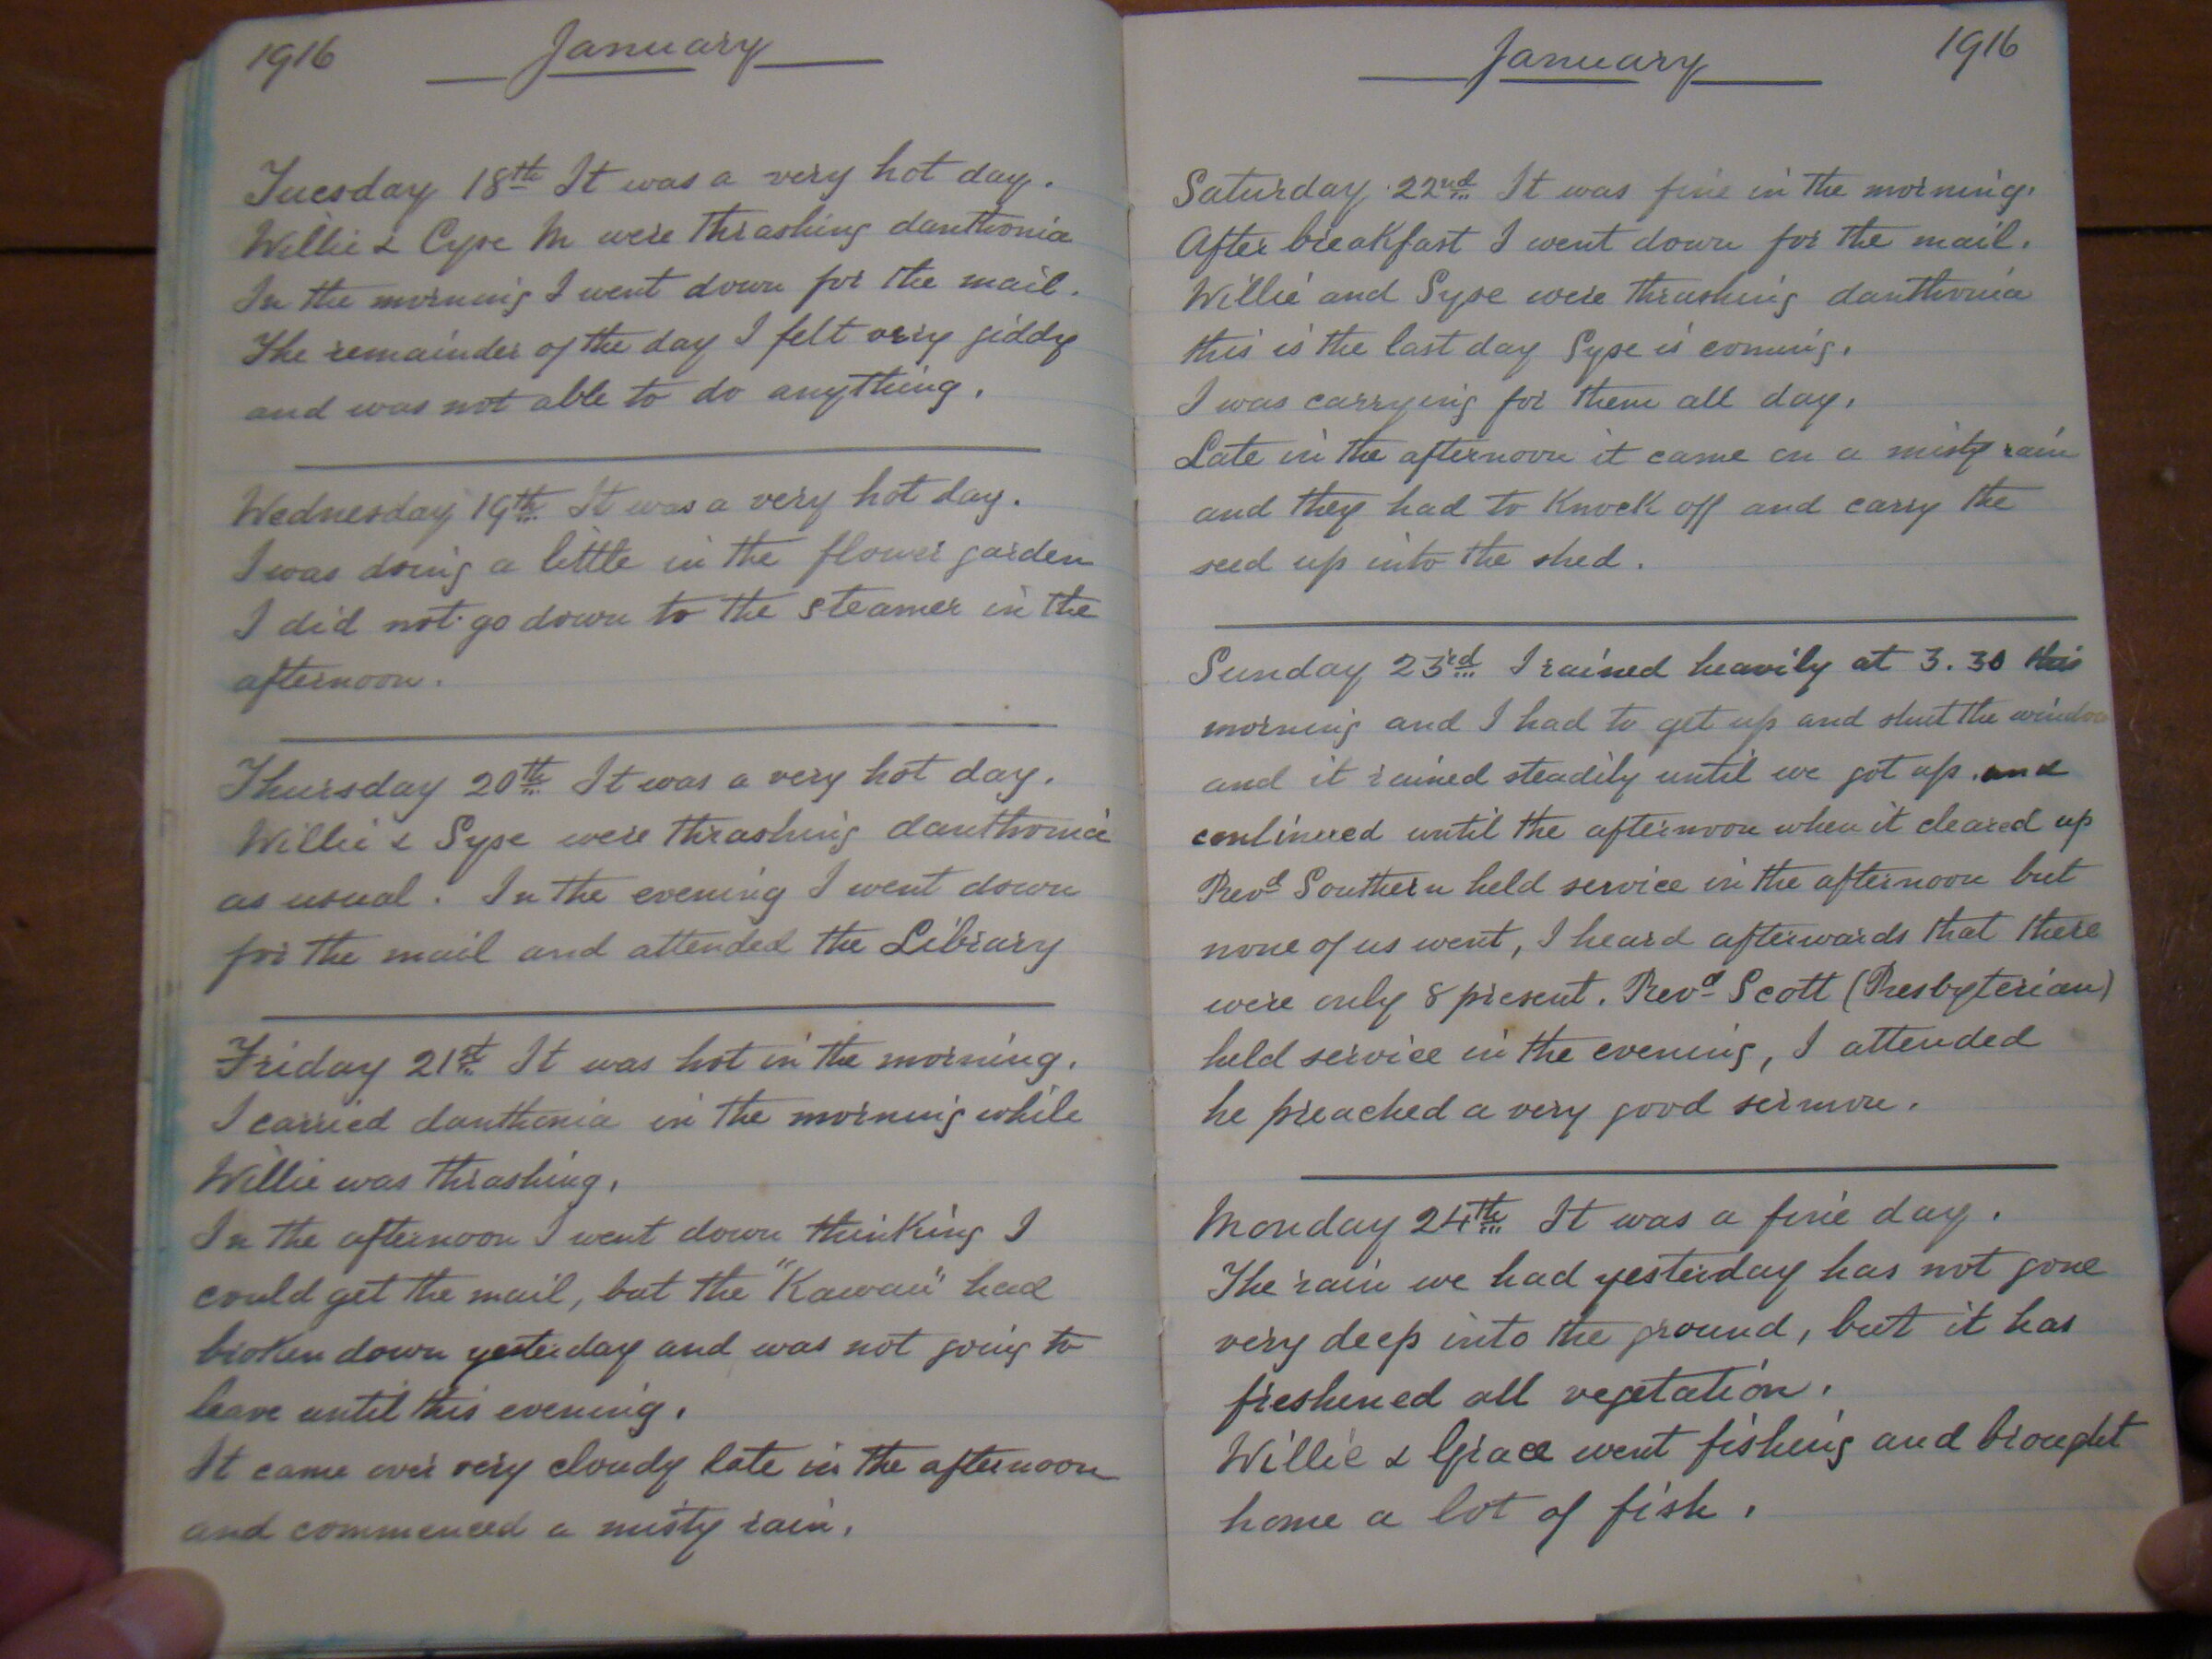 1916 January
Tuesday 18th It was a very hot day.
Willie & Cyse M were thrashing danthonia
In the morning I went down for the mail.
The remainder of the day I felt very giddy
and was not able to do anything.
Wednesday 19th It was a very hot day.
I was doing a little in the flower garden
I did not go down to the steamer in the
afternoon.
Thursday 20th It was a very hot day.
Willie & Syse were thrashing danthonia
as usual. In the evening I went down
for the mail and attended the Library
Friday 21st It was hot in the morning.
I carried danthonia in the morning while
Willie was thrashing.
In the afternoon I went down thinking I
could get the mail, but the "Kawau" had
broken down yesterday and was not going to
leave until this evening.
It came over very cloudy late in the afternoon
and commenced a misty rain.
January 1916
Saturday 22nd It was fine in the morning.
After breakfast I went down for the mail.
Willie and Syse were thrashing danthonia
this is the last day Syse is coming.
I was carrying for them all day.
Late in the afternoon it came on a misty rain
and they had to knock off and carry the
seed up into the shed.
Sunday 23rd I rained heavily at 3.30 this
morning and I had to get up and shut the window
and it rained steadily until we got up and
continued until the afternoon when it cleared up
Revd Southern held service in the afternoon but
none of us went, I heard afterwards that there
were only 8 present. Revd Scott (Presbyterian)
held service in the evening, I attended
he preached a very good sermon.
Monday 24th It was a fine day.
The rain we had yesterday has not gone
very deep into the ground, but it has
freshened all vegetation.
Willie & Grace went fishing and brought
home a lot of fish.